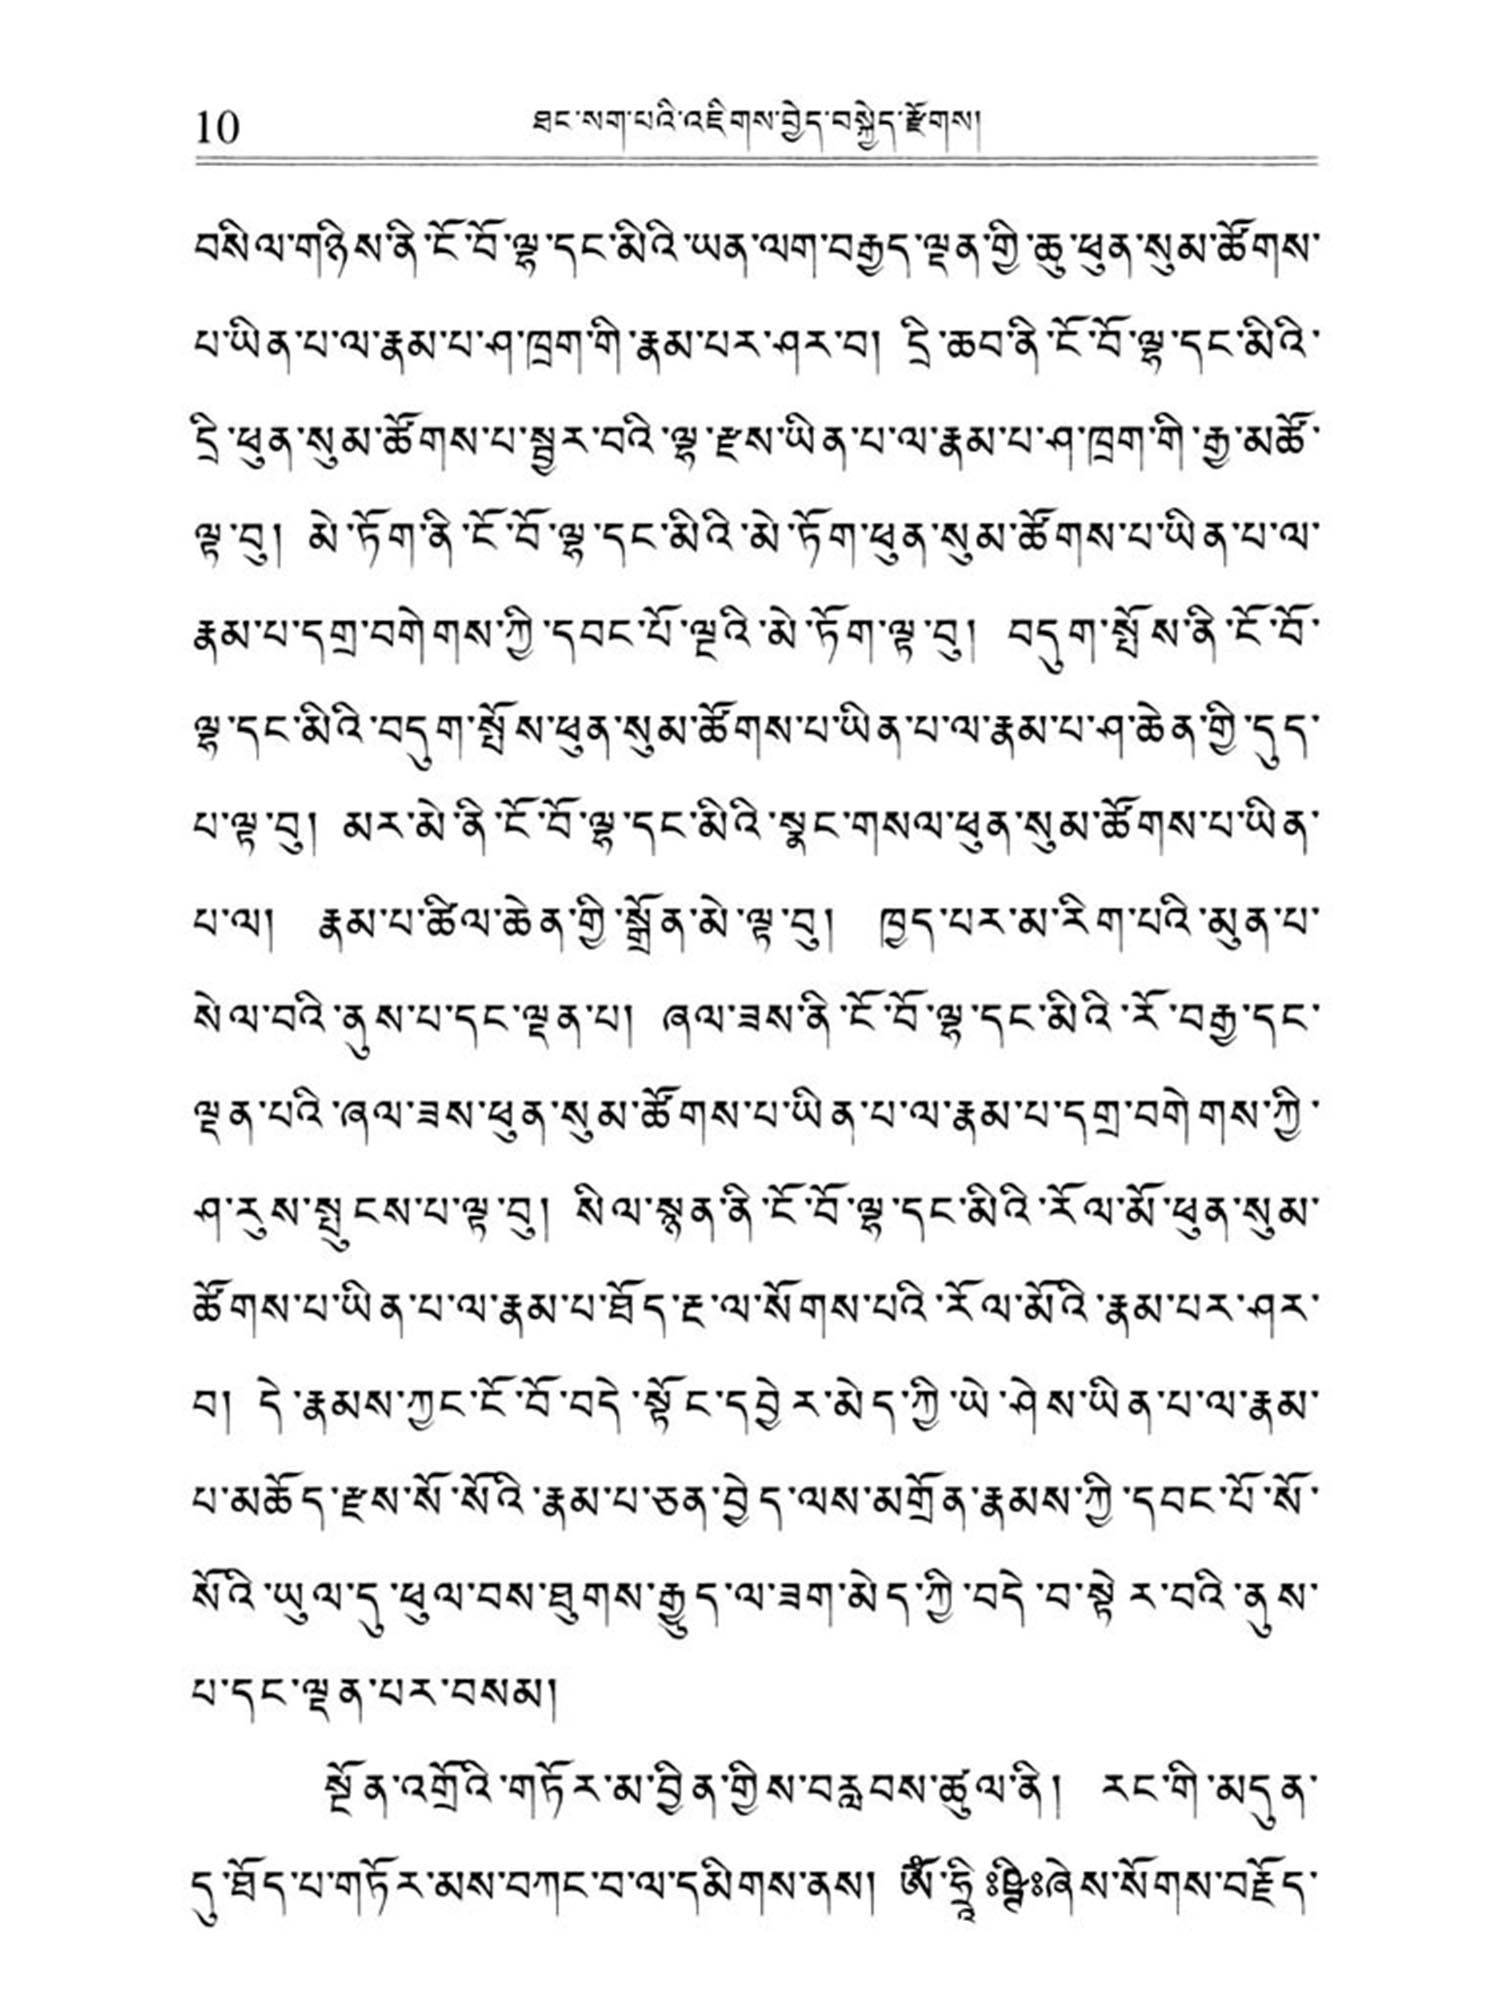 10
ཐང་སག་པའི་འཇིགས་བྱེད་བསྐྱེད་རྫོགས།
བསིལ་གཉིས་ནི་ངོ་བོ་ལྷ་དང་མིའི་ཡན་ལག་བརྒྱད་ལྡན་གྱི་ཆུ་ཕུན་སུམ་ཚོགས་
པ་ཡིན་པ་ལ་རྣམ་པ་ཤ་ཁྲག་གི་རྣམ་པར་ཤར་བ། དྲི་ཆབ་ནི་ངོ་བོ་ལྷ་དང་མིའི་
དྲི་ཕུན་སུམ་ཚོགས་པ་སྦྱར་བའི་ལྷ་རྫས་ཡིན་པ་ལ་རྣམ་པ་ཤ་ཁྲག་གི་རྒྱ་མཚོ་
ལྟ་བུ། མེ་ཏོག་ནི་ངོ་བོ་ལྷ་དང་མིའི་མེ་ཏོག་ཕུན་སུམ་ཚོགས་པ་ཡིན་པ་ལ་
རྣམ་པ་དགྲ་བགེགས་ཀྱི་དབང་པོ་ལྔའི་མེ་ཏོག་ལྟ་བུ། བདུག་སྤོས་ནི་ངོ་བོ་
ལྷ་དང་མིའི་བདུག་སྤོས་ཕུན་སུམ་ཚོགས་པ་ཡིན་པ་ལ་རྣམ་པ་ཤ་ཆེན་གྱི་དུད་
པ་ལྟ་བུ། མར་མེ་ནི་ངོ་བོ་ལྷ་དང་མིའི་སྣང་གསལ་ཕུན་སུམ་ཚོགས་པ་ཡིན་
པ་ལ། རྣམ་པ་ཚིལ་ཆེན་གྱི་སྒྲོན་མེ་ལྟ་བུ། ཁྱད་པར་མ་རིག་པའི་མུན་པ་
སེལ་བའི་ནུས་པ་དང་ལྡན་པ། ཞལ་ཟས་ནི་ངོ་བོ་ལྷ་དང་མིའི་རོ་བརྒྱ་དང་
ལྡན་པའི་ཞལ་ཟས་ཕུན་སུམ་ཚོགས་པ་ཡིན་པ་ལ་རྣམ་པ་དགྲ་བགེགས་ཀྱི་
ཤ་རུས་སྤུངས་པ་ལྟ་བུ། སིལ་སྙན་ནི་ངོ་བོ་ལྷ་དང་མིའི་རོལ་མོ་ཕུན་སུམ་
ཚོགས་པ་ཡིན་པ་ལ་རྣམ་པ་ཐོད་རྔ་ལ་སོགས་པའི་རོལ་མོའི་རྣམ་པར་ཤར་
བ། དེ་རྣམས་ཀྱང་ངོ་བོ་བདེ་སྟོང་དབྱེར་མེད་ཀྱི་ཡེ་ཤེས་ཡིན་པ་ལ་རྣམ་
པ་མཆོད་རྫས་སོ་སོའི་རྣམ་པ་ཅན་བྱེད་ལས་མགྲོན་རྣམས་ཀྱི་དབང་པོ་སོ་
སོའི་ཡུལ་དུ་ཕུལ་བས་ཐུགས་རྒྱུད་ལ་ཟག་མེད་ཀྱི་བདེ་བ་སྟེར་བའི་ནུས་
པ་དང་ལྡན་པར་བསམ།
སྔོན་འགྲོའི་གཏོར་མ་བྱིན་གྱིས་བརླབས་ཚུལ་ནི། རང་གི་མདུན་
དུ་ཐོད་པ་གཏོར་མས་བཀང་བ་ལ་དམིགས་ནས། ཨོཾ་ཧྲཱིཿཥྚྲཱིཿཞེས་སོགས་བརྗོད་